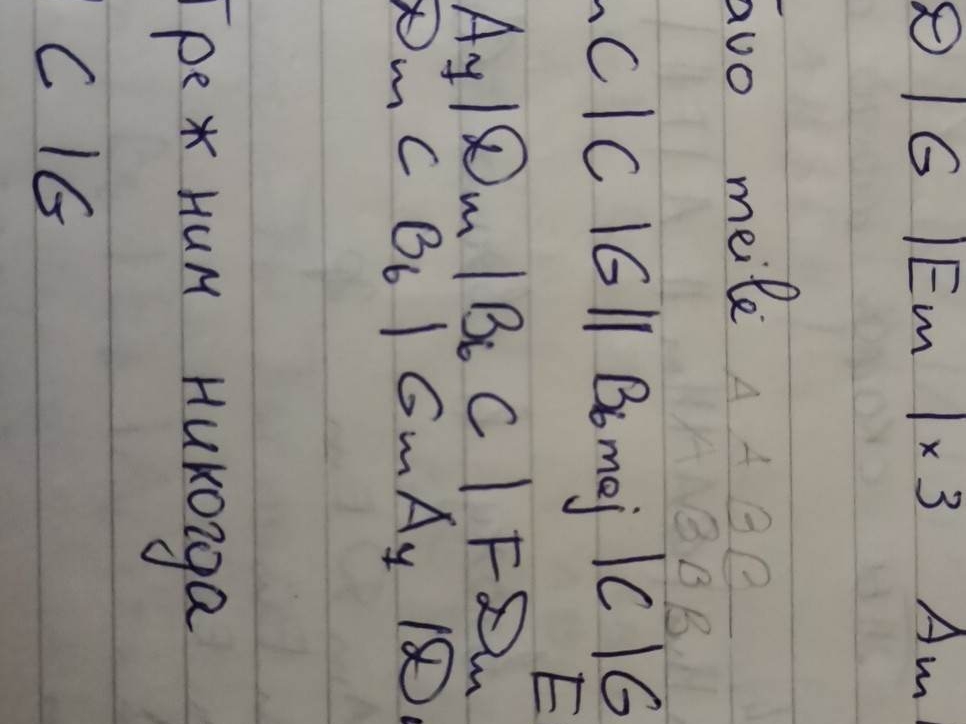 D | G | Em | x 3 Am |
meilė
C | C | G || Bb maj | C | G
E
A7 | Dm | Bb C | F Dm
Dm C Bb | Gm A7 | D
Греж ним никогда
C | G